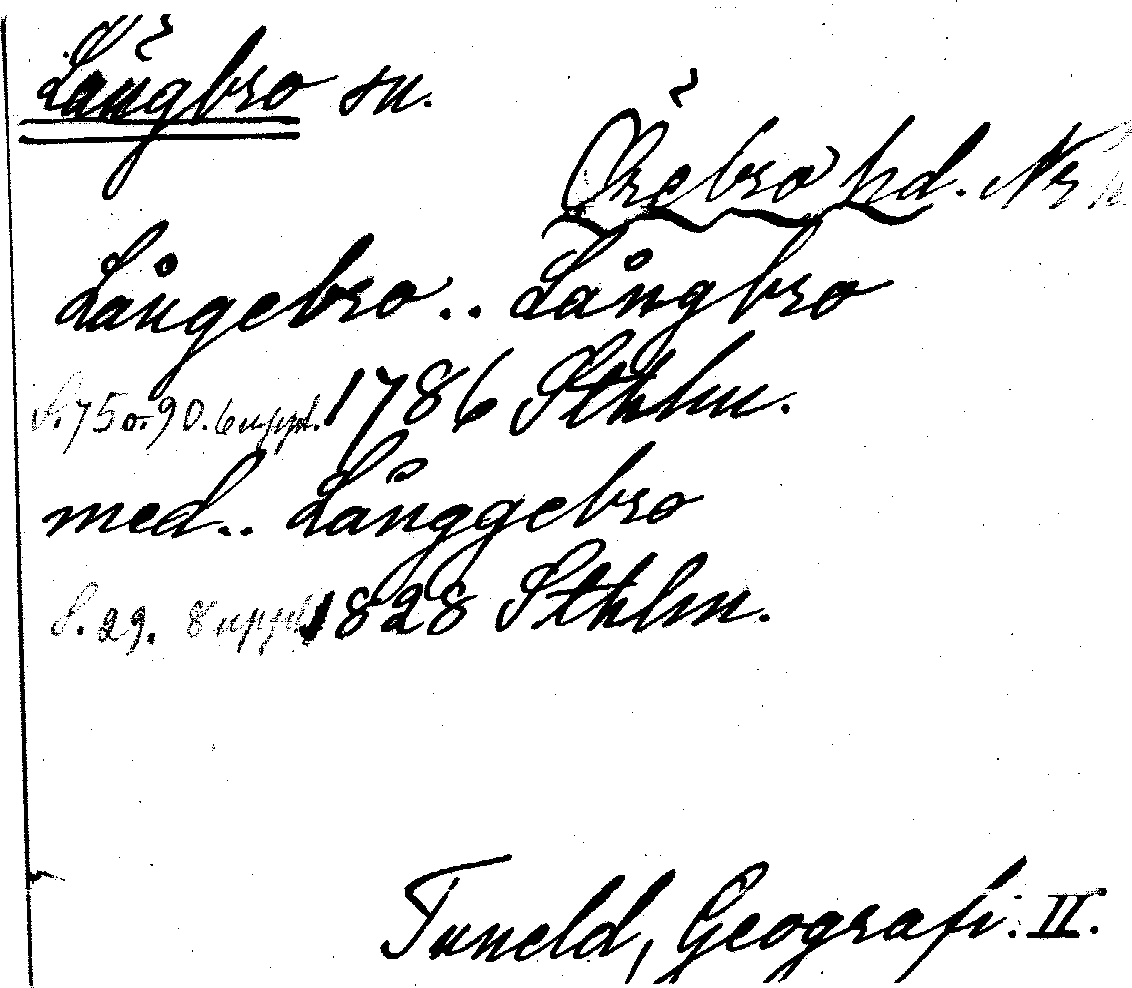 Långbro sn.
Örebro hd. Nrk
Långebro.. Långbro
S. 75 o. 90. 6 uppl. 1786 Sthlm.
med.. Långgebro
S. 29. 8 uppl. 1828 Sthlm.
Tuneld, Geografi. II.